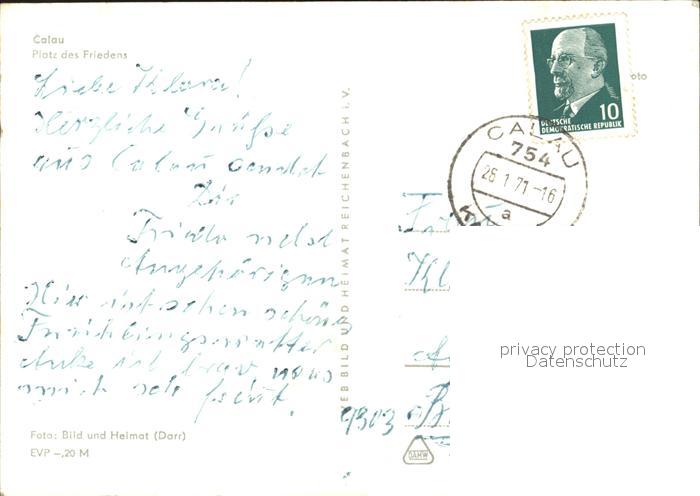 Calau
Platz des Friedens
Liebe Klara!
Herzliche Grüße
aus Calau sendet
Dir
Frieda nebst
Angehörigen
Hier ist schon schönes
Frühlingswetter
Anke ist brav
mich
Foto: Bild und Heimat (Darr)
EVP –,20 M
VEB BILD UND HEIMAT REICHENBACH i. V.
10
DEUTSCHE
DEMOKRATISCHE REPUBLIK
oto
CALAU
754
26.1.71-16
a
Frau
Kl
9303
DAHW
privacy protection
Datenschutz